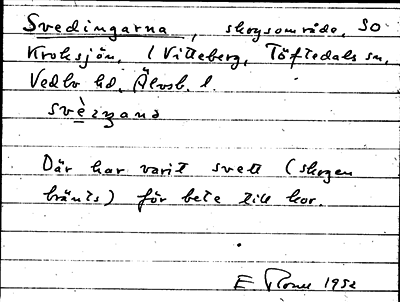 Svedingarna, skogsområde, SO
Kroksjön, i Vitteberg, Töftedals sn,
Vedbo hd, Älvsb. l.
svè
Där har varit svett (skogen
bränts) för bete till kor.
E 1952